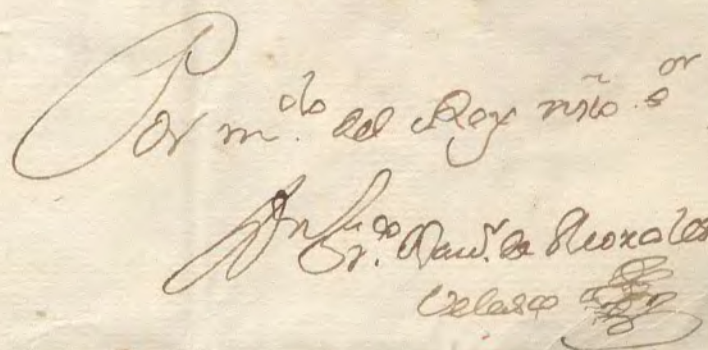 Por m.do del Rey nro s.or
Dn Fran.co Dan.l de Morales
Velasco